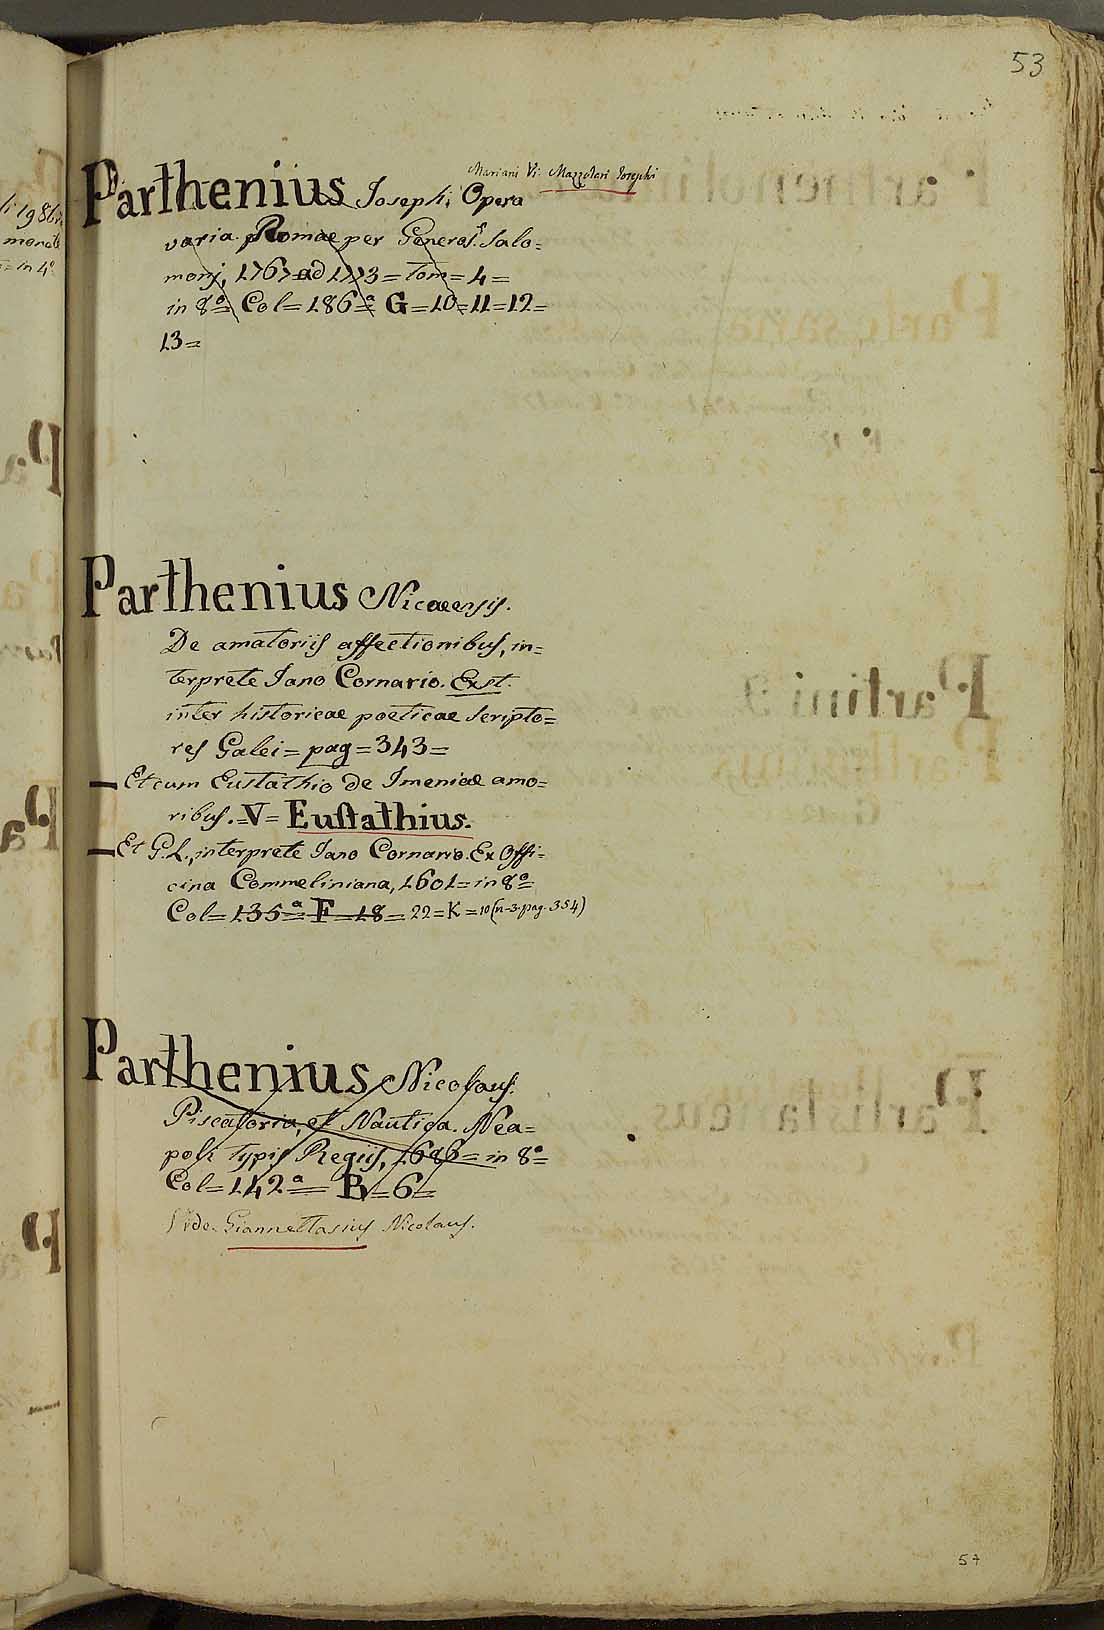 53
Mariani Vi: Mazzolari Josephi
Parthenius Josephi Opera
varia. Romae per Generos. Salo=
monj, 1767 ad 1773 = tom = 4 =
in 8º = Col = 186ª = G = 10 = 11 = 12 =
13 =
Parthenius Nicaeensis.
De amatoriis affectionibus, in=
terprete Jano Cornario. Exst.
inter historicae poeticae scripto=
res Galei = pag = 343 =
— Et cum Eustathio de Imeniae amo=
ribus. = V = Eustathius.
— Et G. L., interprete Jano Cornario. Ex Offi=
cina Commeliniana, 1601 = in 8º =
Col = 135ª = F = 18 = 22 = K = 10 (n-3. pag. 354)
Parthenius Nicolaus.
Piscatoria, et Nautica. Nea=
poli typis Regiis, 1686 = in 8º =
Col = 142ª = B = 6 =
Vide Giannettasius Nicolaus.
57